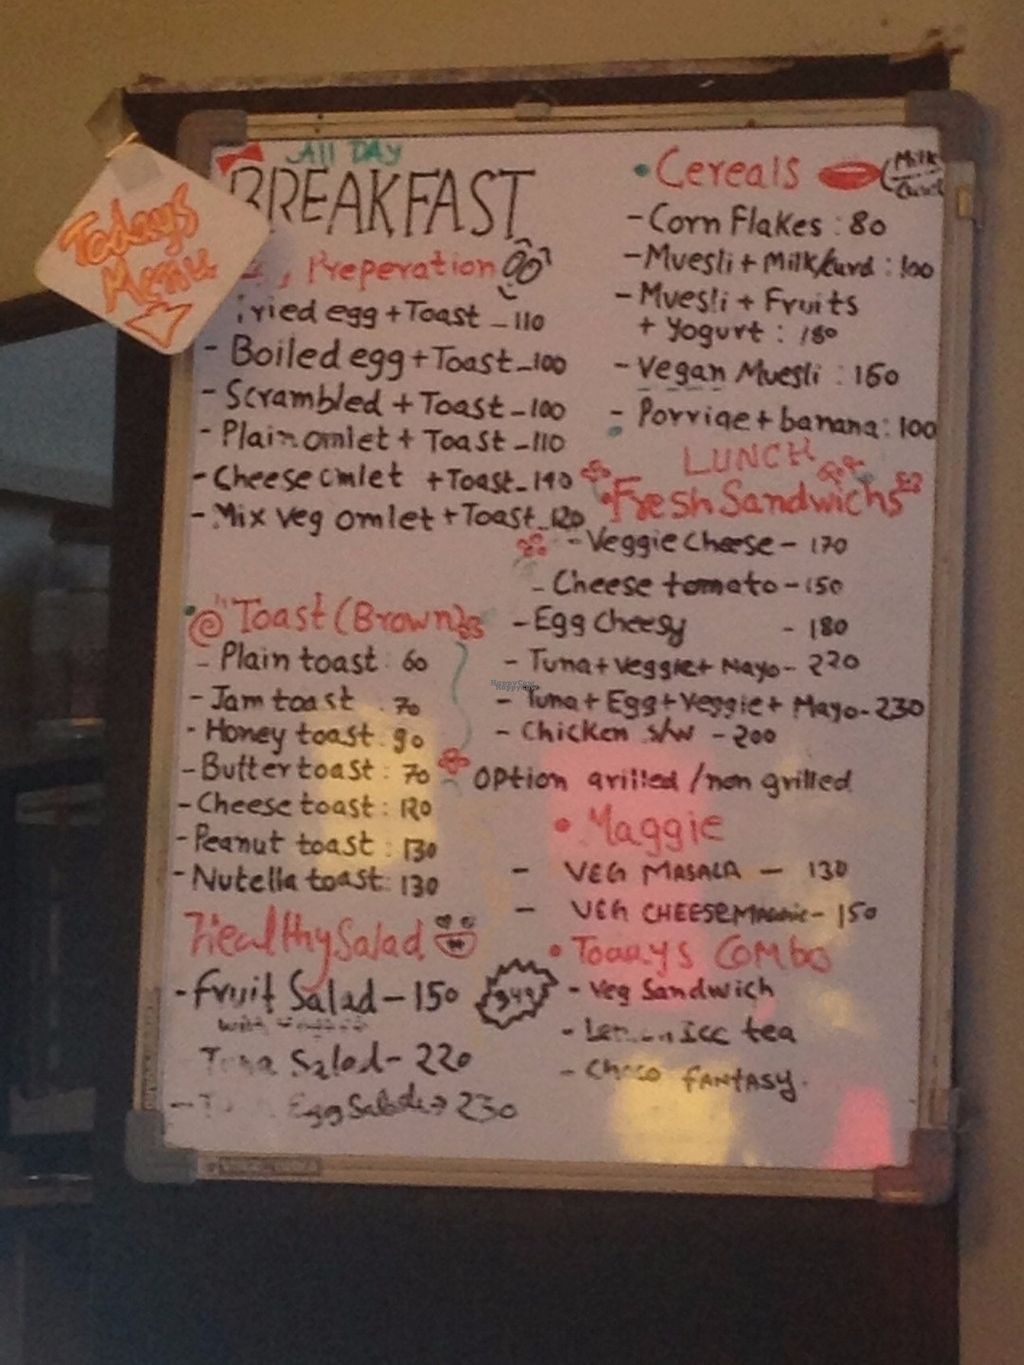 Todays
Menu
All DAY
BREAKFAST
Preperation
Fried egg + Toast - 110
- Boiled egg + Toast - 100
- Scrambled + Toast - 100
- Plain omlet + Toast - 110
- Cheese omlet + Toast - 140
- Mix veg omlet + Toast - 120
@ Toast (Brown)
- Plain toast : 60
- Jam toast : 70
- Honey toast : 90
- Butter toast : 70
- Cheese toast : 120
- Peanut toast : 130
- Nutella toast : 130
Healthy Salad
- Fruit Salad - 150
with
Tuna Salad - 220
- Egg Salad 230
• Cereals (Milk
Curd
- Corn Flakes : 80
- Muesli + Milk/curd : 100
- Muesli + Fruits
+ Yogurt : 180
- Vegan Muesli : 160
- Porrige + banana : 100
LUNCH
• Fresh Sandwichs
- Veggie Cheese - 170
- Cheese tomato - 150
- Egg Cheesy - 180
- Tuna + Veggie + Mayo - 220
- Tuna + Egg + Veggie + Mayo - 230
- Chicken s/w - 200
OPtion grilled / non grilled
• Maggie
- VEG MASALA - 130
- VEG CHEESE MAGGIE - 150
• Todays Combo
349
- Veg Sandwich
- Lemon Ice tea
- Choco FANTASY.
HappyCow